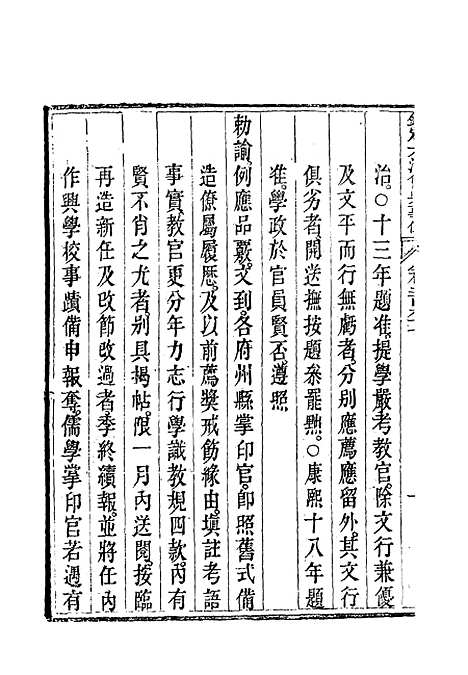 治。○十三年題准。提學嚴考教官。除文行兼優
及文平而行無虧者。分別應薦應留外。其文行
俱劣者。開送撫按題叅罷黜。○康熙十八年題
准。學政於官員賢否。遵照
勅諭。例應品覈。文到。各府州縣掌印官。卽照舊式備
造僚屬履歷。及以前薦獎戒飭緣由。填註考語
事實。教官更分年力志行學識教規四款。內有
賢不肖之尤者。别具揭帖。限一月內送閱。按臨
再造新任及改節改過者季終續報。並將任內
作興學校事蹟備申報奪。儒學掌印官若遇有